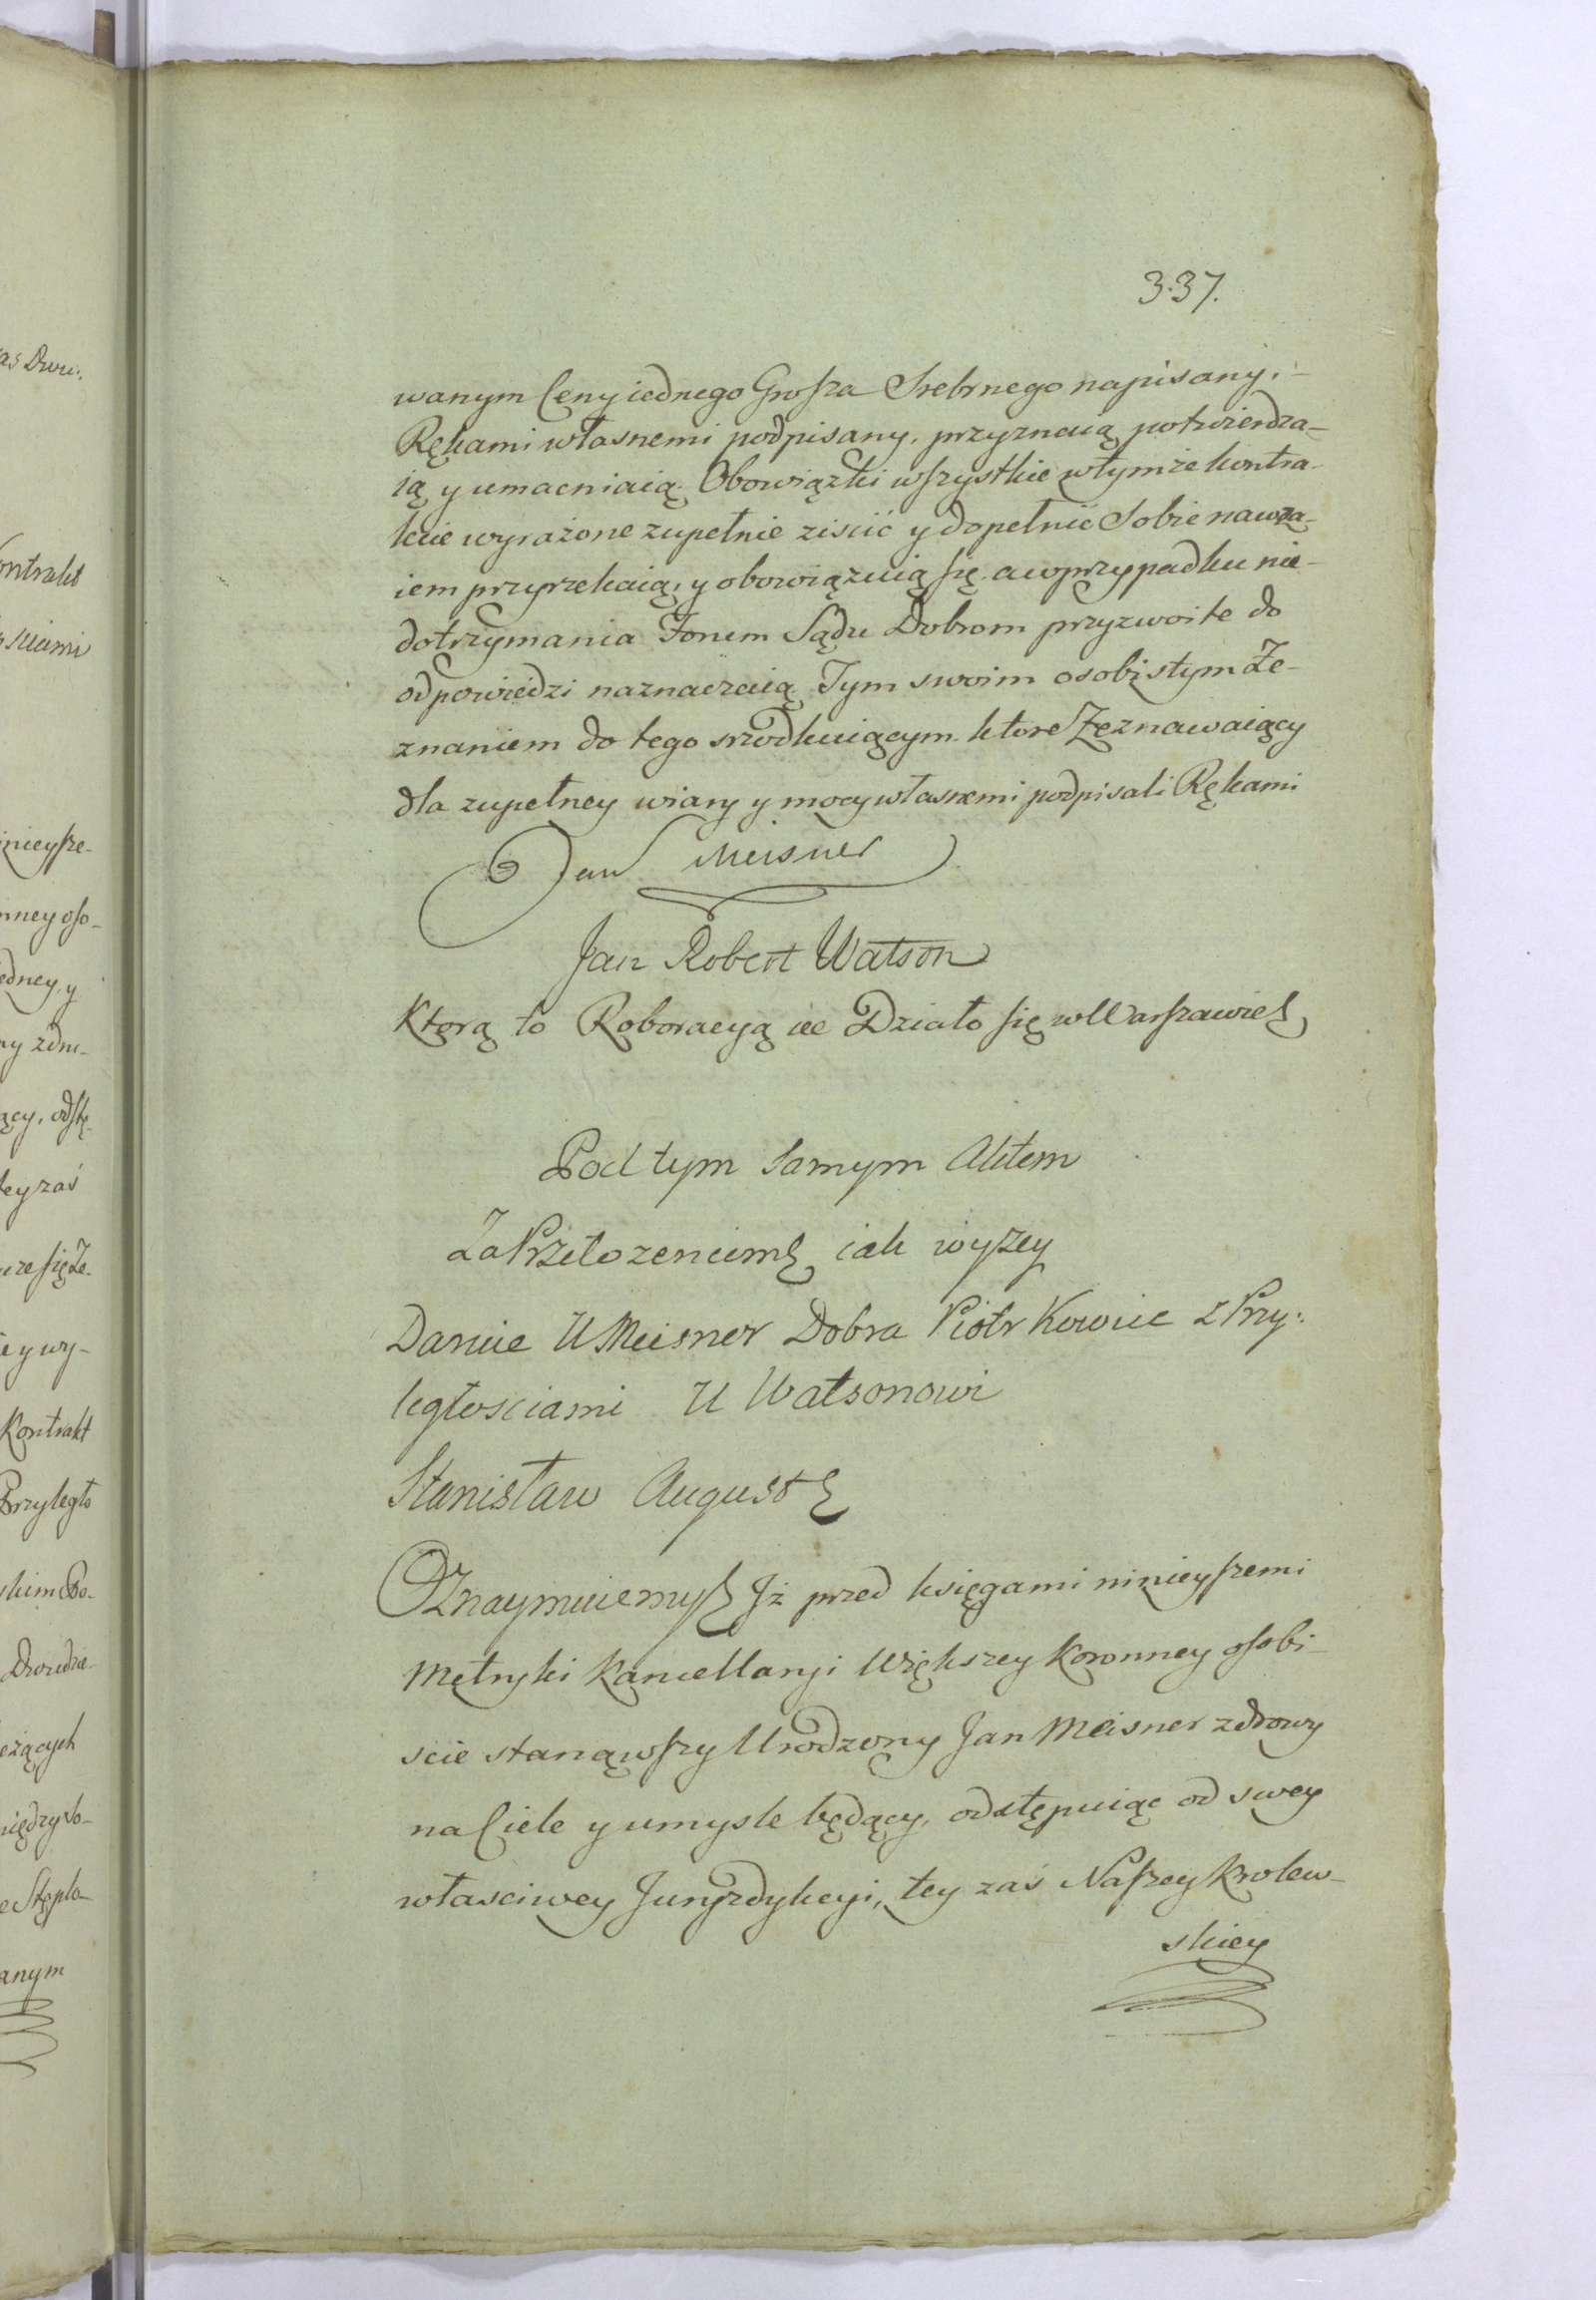 337.
wanym Ceny iednego Grosza Srebrnego napisany,
Rękami własnemi podpisany, przyznaią potwierdza-
ią y umacniaią. Obowiązki wszystkie w tymże kontra-
kcie wyrażone zupełnie ziscić y dopełnić Sobie nawza-
iem przyrzekaią, y obowiązuią się. a w przypadku nie-
dotrzymania Forum Sądu Dobrom przyzwoite do
odpowiedzi naznaczaią Tym swoim osobistym Ze-
znaniem do tego srzodkuiącym. ktore Zeznawaiący
dla zupełney wiary y mocy własnemi podpisali Rękami
Jan Meisner
Jan Robert Watson
Ktorą to Roboracyą etc Działo się w Warszawie
Pod tym Samym Aktem
Za Przełozeniem iak wyzey
Danie U Meisner Dobra Piotrkowice z Przy:
ległosciami U Watsonowi
Stanisław August
Oznaymuiemy Iż przed księgami ninieyszemi
Metryki Kancellaryi Większey Koronney osobi-
scie stanąwszy Urodzony Jan Meisner zdrowy
na Ciele y umysle będący, odstępuiąc od swey
własciwey Juryzdykcyi, tey zaś Naszey Krolew-
skiey
as Dwu:
ontrakt
sciami
inieysze-
nney oso-
edney, y
ny zdm-
ący, odstę-
tey zaś
ze się Ze-
ie y wy-
Kontrakt
Przyległo
skim Po-
eżących
między so-
anym